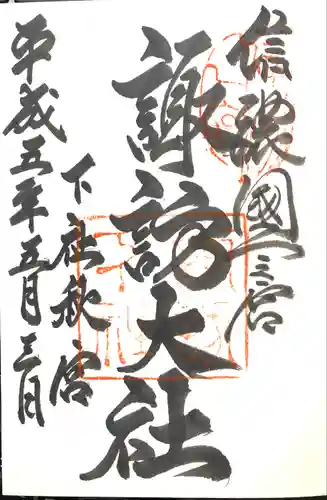 信濃國一之宮
諏訪大社
下社秋宮
平成五年五月三日